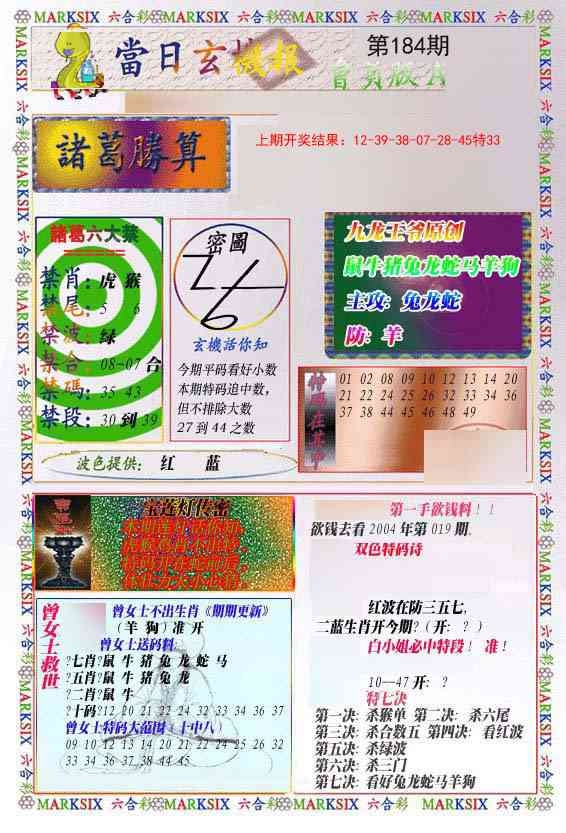 MARKSIX 六合彩 MARKSIX 六合彩 MARKSIX 六合彩 MARKSIX 六合彩
當日玄機
微报
第184期
會員版A
諸葛勝算
上期开奖结果：12-39-38-07-28-45特33
諸葛六大禁
禁肖：虎 猴
禁尾：5 6
禁波：绿
禁合：08-07合
禁碼：35 43
禁段：30到39
密圖
玄機活你知
今期平码看好小数
本期特码追中数，
但不排除大数
27到44之数
九龙王爷原创
鼠牛猪兔龙蛇马羊狗
主攻：兔龙蛇
防：羊
特码在其中
01 02 08 09 10 12 13 14 20
21 22 24 25 26 32 33 34 36
37 38 44 45 46 48 49
波色提供： 红 蓝
宝莲灯传密
曾女士救世
曾女士不出生肖《期期更新》
（羊 狗）准 开
曾女士送码料
?七肖?鼠 牛 猪 兔 龙 蛇 马
?五肖?鼠 牛 猪 兔 龙
?二肖?鼠 牛
?十码?12 20 21 22 24 32 33 34 36 37
曾女士特码大范围（十中八）
09 10 12 13 14 20 21 22 24 25 26 32
33 34 36 37 38 44 45
第一手欲钱料！！
欲钱去看2004年第019期.
双色特码诗
红波在防三五七,
二蓝生肖开今期?(开: ?)
白小姐必中特段！ 准！
10—47开: ?
特七决
第一决: 杀猴单 第二决: 杀六尾
第三决: 杀合数五 第四决: 看红波
第五决: 杀绿波
第六决: 杀三门
第七决: 看好兔龙蛇马羊狗
MARKSIX 六合彩 MARKSIX 六合彩 MARKSIX 六合彩 MARKSIX 六合彩